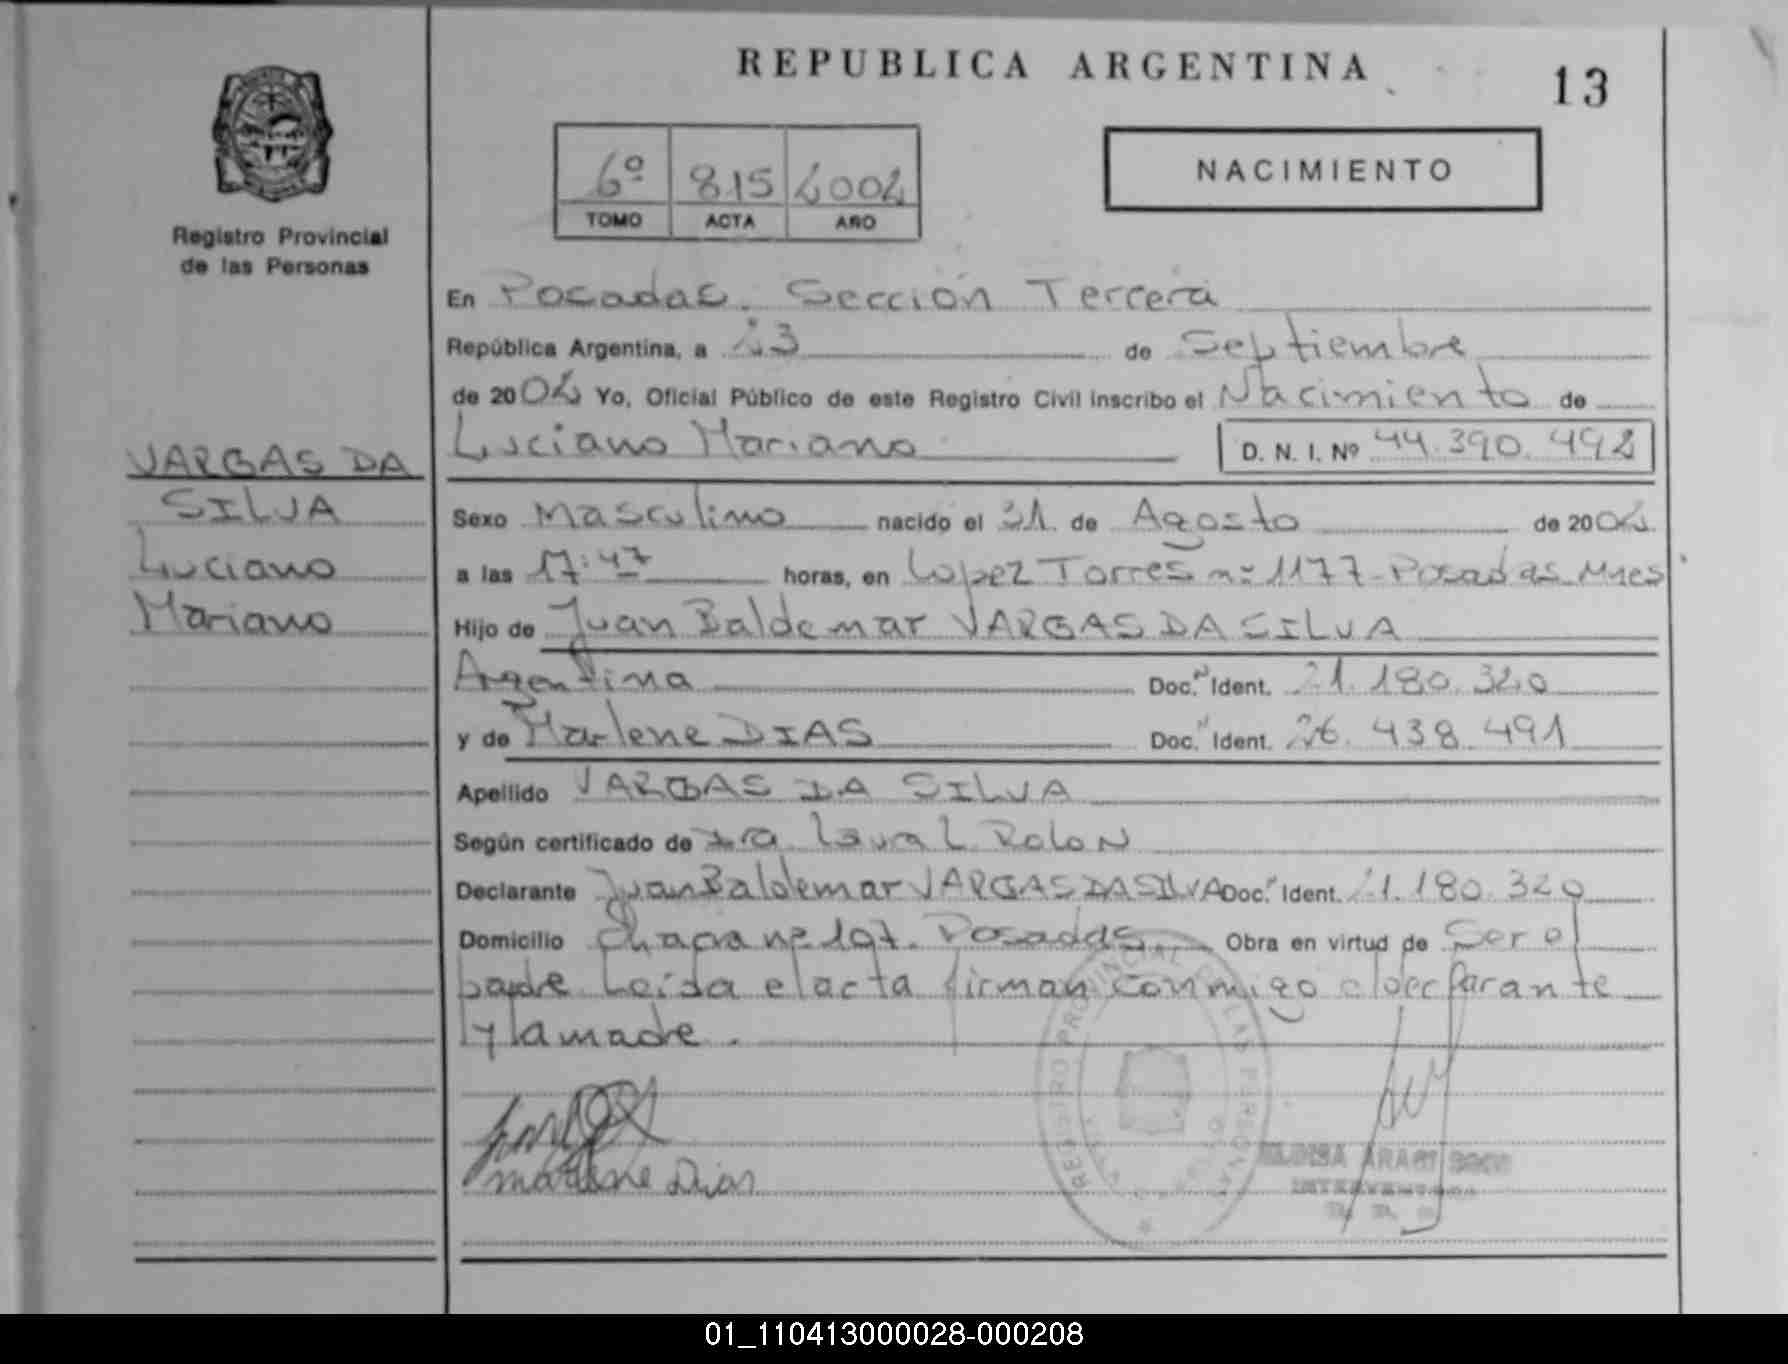 REPUBLICA ARGENTINA
13
6º 815 2002
TOMO ACTA AÑO
NACIMIENTO
Registro Provincial
de las Personas
En Posadas. Sección Tercera
República Argentina, a 23 de Septiembre
de 2002 Yo, Oficial Público de este Registro Civil inscribo el Nacimiento de
Luciano Mariano D. N. I. Nº 44.390.492
VARGAS DA
SILVA
Luciano
Mariano
Sexo Masculino nacido el 31 de Agosto de 2002
a las 17:47 horas, en Lopez Torres nº 1177 - Posadas Mnes
Hijo de Juan Baldemar VARGAS DA SILVA
Argentina Doc. Ident. 21.180.320
y de Marlene DIAS Doc. Ident. 26.438.491
Apellido VARGAS DA SILVA
Según certificado de Dra. Laura L. Rolon
Declarante Juan Baldemar VARGAS DA SILVA Doc. Ident. 21.180.320
Domicilio Chacra nº 197. Posadas. Obra en virtud de Ser el
padre Leída el acta firman conmigo el declarante
y la madre.
Marlene Dias
REGISTRO PROVINCIAL DE LAS PERSONAS